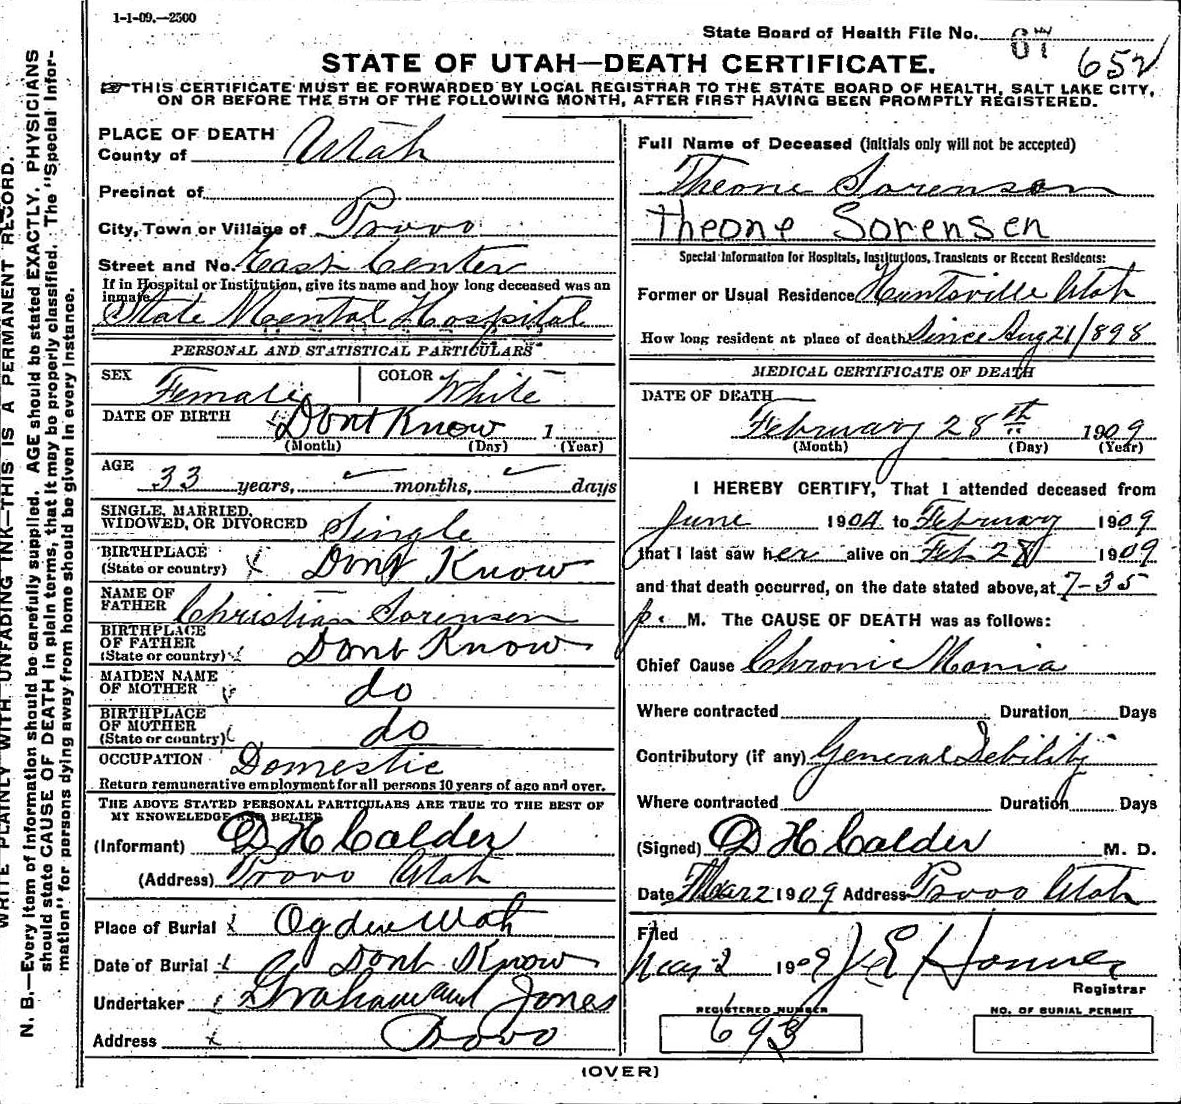 1-1-09.—2500
State Board of Health File No. 67 652
STATE OF UTAH—DEATH CERTIFICATE.
THIS CERTIFICATE MUST BE FORWARDED BY LOCAL REGISTRAR TO THE STATE BOARD OF HEALTH, SALT LAKE CITY,
ON OR BEFORE THE 5TH OF THE FOLLOWING MONTH, AFTER FIRST HAVING BEEN PROMPTLY REGISTERED.
WRITE PLAINLY WITH UNFADING INK—THIS IS A PERMANENT RECORD.
N. B.—Every item of information should be carefully supplied. AGE should be stated EXACTLY. PHYSICIANS
should state CAUSE OF DEATH in plain terms, that it may be properly classified. The "Special Infor-
mation" for persons dying away from home should be given in every instance.
PLACE OF DEATH
County of Utah
Precinct of
City, Town or Village of Provo
Street and No. East Center
If in Hospital or Institution, give its name and how long deceased was an
inmate
State Mental Hospital
PERSONAL AND STATISTICAL PARTICULARS
SEX Female COLOR White
DATE OF BIRTH Dont Know 1
(Month) (Day) (Year)
AGE
33 years, months, days
SINGLE, MARRIED,
WIDOWED, OR DIVORCED Single
BIRTHPLACE
(State or country) x Dont Know
NAME OF
FATHER Christian Sorensen
BIRTHPLACE
OF FATHER
(State or country) Dont Know
MAIDEN NAME
OF MOTHER do
BIRTHPLACE
OF MOTHER
(State or country) do
OCCUPATION Domestic
Return remunerative employment for all persons 10 years of age and over.
THE ABOVE STATED PERSONAL PARTICULARS ARE TRUE TO THE BEST OF
MY KNOWLEDGE AND BELIEF
(Informant) D H Calder
(Address) Provo Utah
Place of Burial x Ogden Utah
Date of Burial Dont Know
Undertaker Graham and Jones
Address x Provo
Full Name of Deceased (Initials only will not be accepted)
Theone Sorensen
Theone Sorensen
Special Information for Hospitals, Institutions, Transients or Recent Residents:
Former or Usual Residence Huntsville Utah
How long resident at place of death Since Aug 21/898
MEDICAL CERTIFICATE OF DEATH
DATE OF DEATH
February 28th 1909
(Month) (Day) (Year)
I HEREBY CERTIFY, That I attended deceased from
June 1904 to February 1909
that I last saw her alive on Feb 28 1909
and that death occurred, on the date stated above, at 7-35
p. M. The CAUSE OF DEATH was as follows:
Chief Cause Chronic Mania
Where contracted Duration Days
Contributory (if any) General Debility
Where contracted Duration Days
(Signed) D H Calder M. D.
Date Mar 2 1909 Address Provo Utah
Filed
Mar 2 1909 J E
Registrar
REGISTERED NUMBER
693
NO. OF BURIAL PERMIT
(OVER)